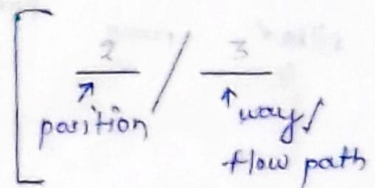 2 / 3
position way/
flow path